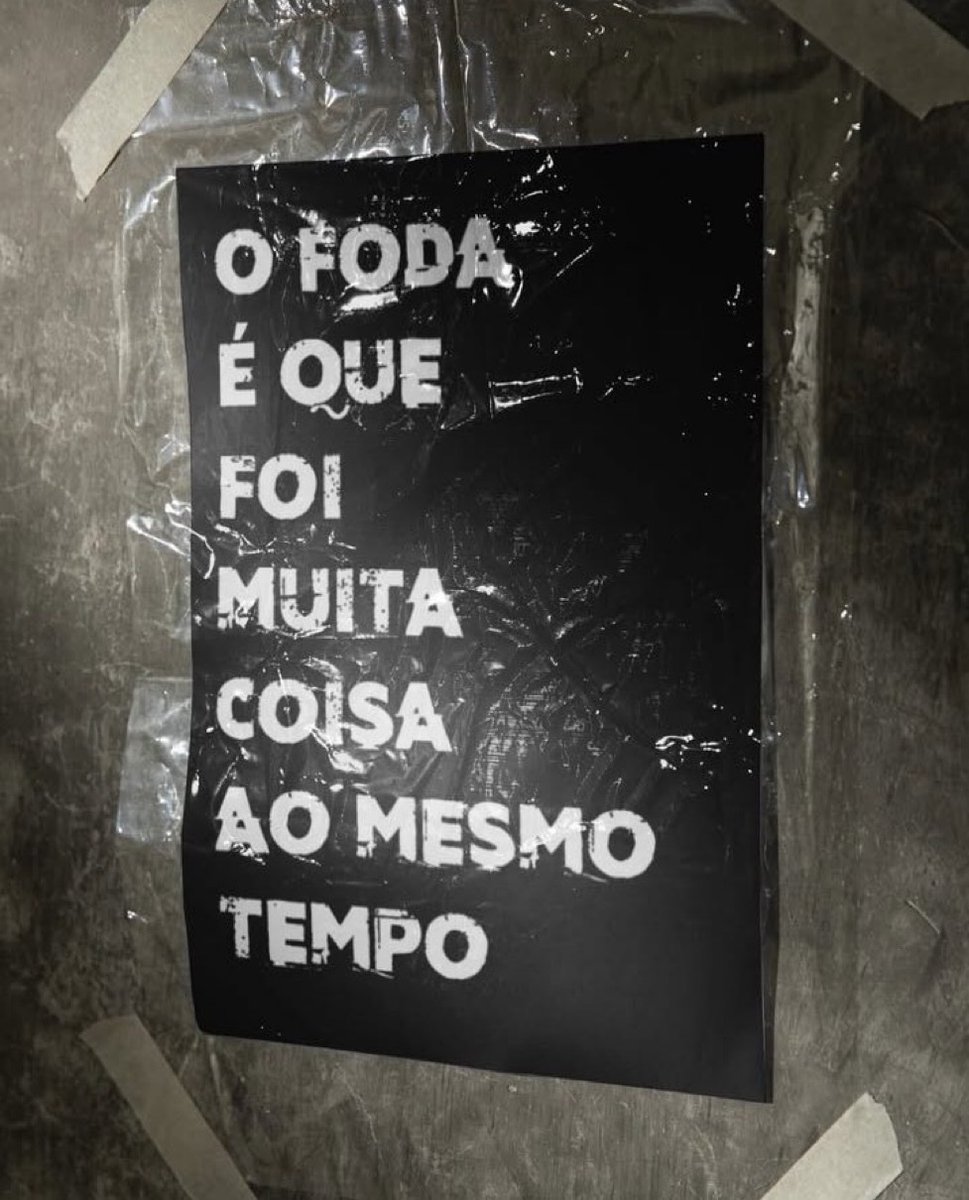 O FODA
É QUE
FOI
MUITA
COISA
AO MESMO
TEMPO